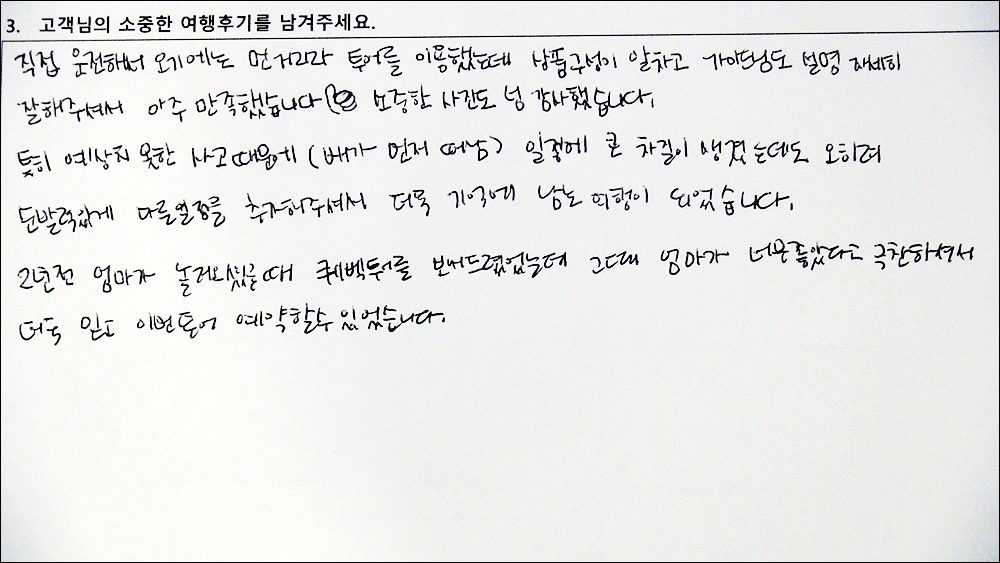 3. 고객님의 소중한 여행후기를 남겨주세요.
직접 운전해서 오기에는 먼거리라 투어를 이용했는데 상품구성이 알차고 가이드님도 설명 자세히
잘해주셔서 아주 만족했습니다 소중한 사진도 넘 감사했습니다.
특히 예상치 못한 사고때문에 (배가 먼저 떠남) 일정에 큰 차질이 생겼는데도 오히려
순발력있게 다른일정를 추가해주셔서 더욱 기억에 남는 여행이 되었습니다.
2년전 엄마가 놀러오셨을때 퀘벡투어를 보내드렸었는데 그때 엄마가 너무좋았다고 극찬하셔서
더욱 믿고 이번투어 예약할수 있었습니다.